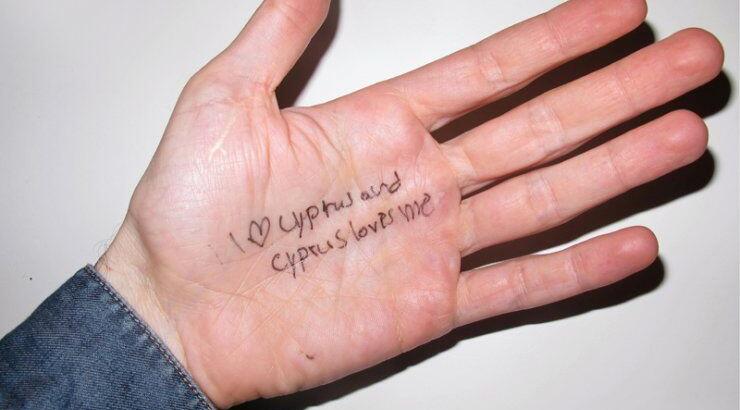 I ♡ cyprus and
cyprus loves me